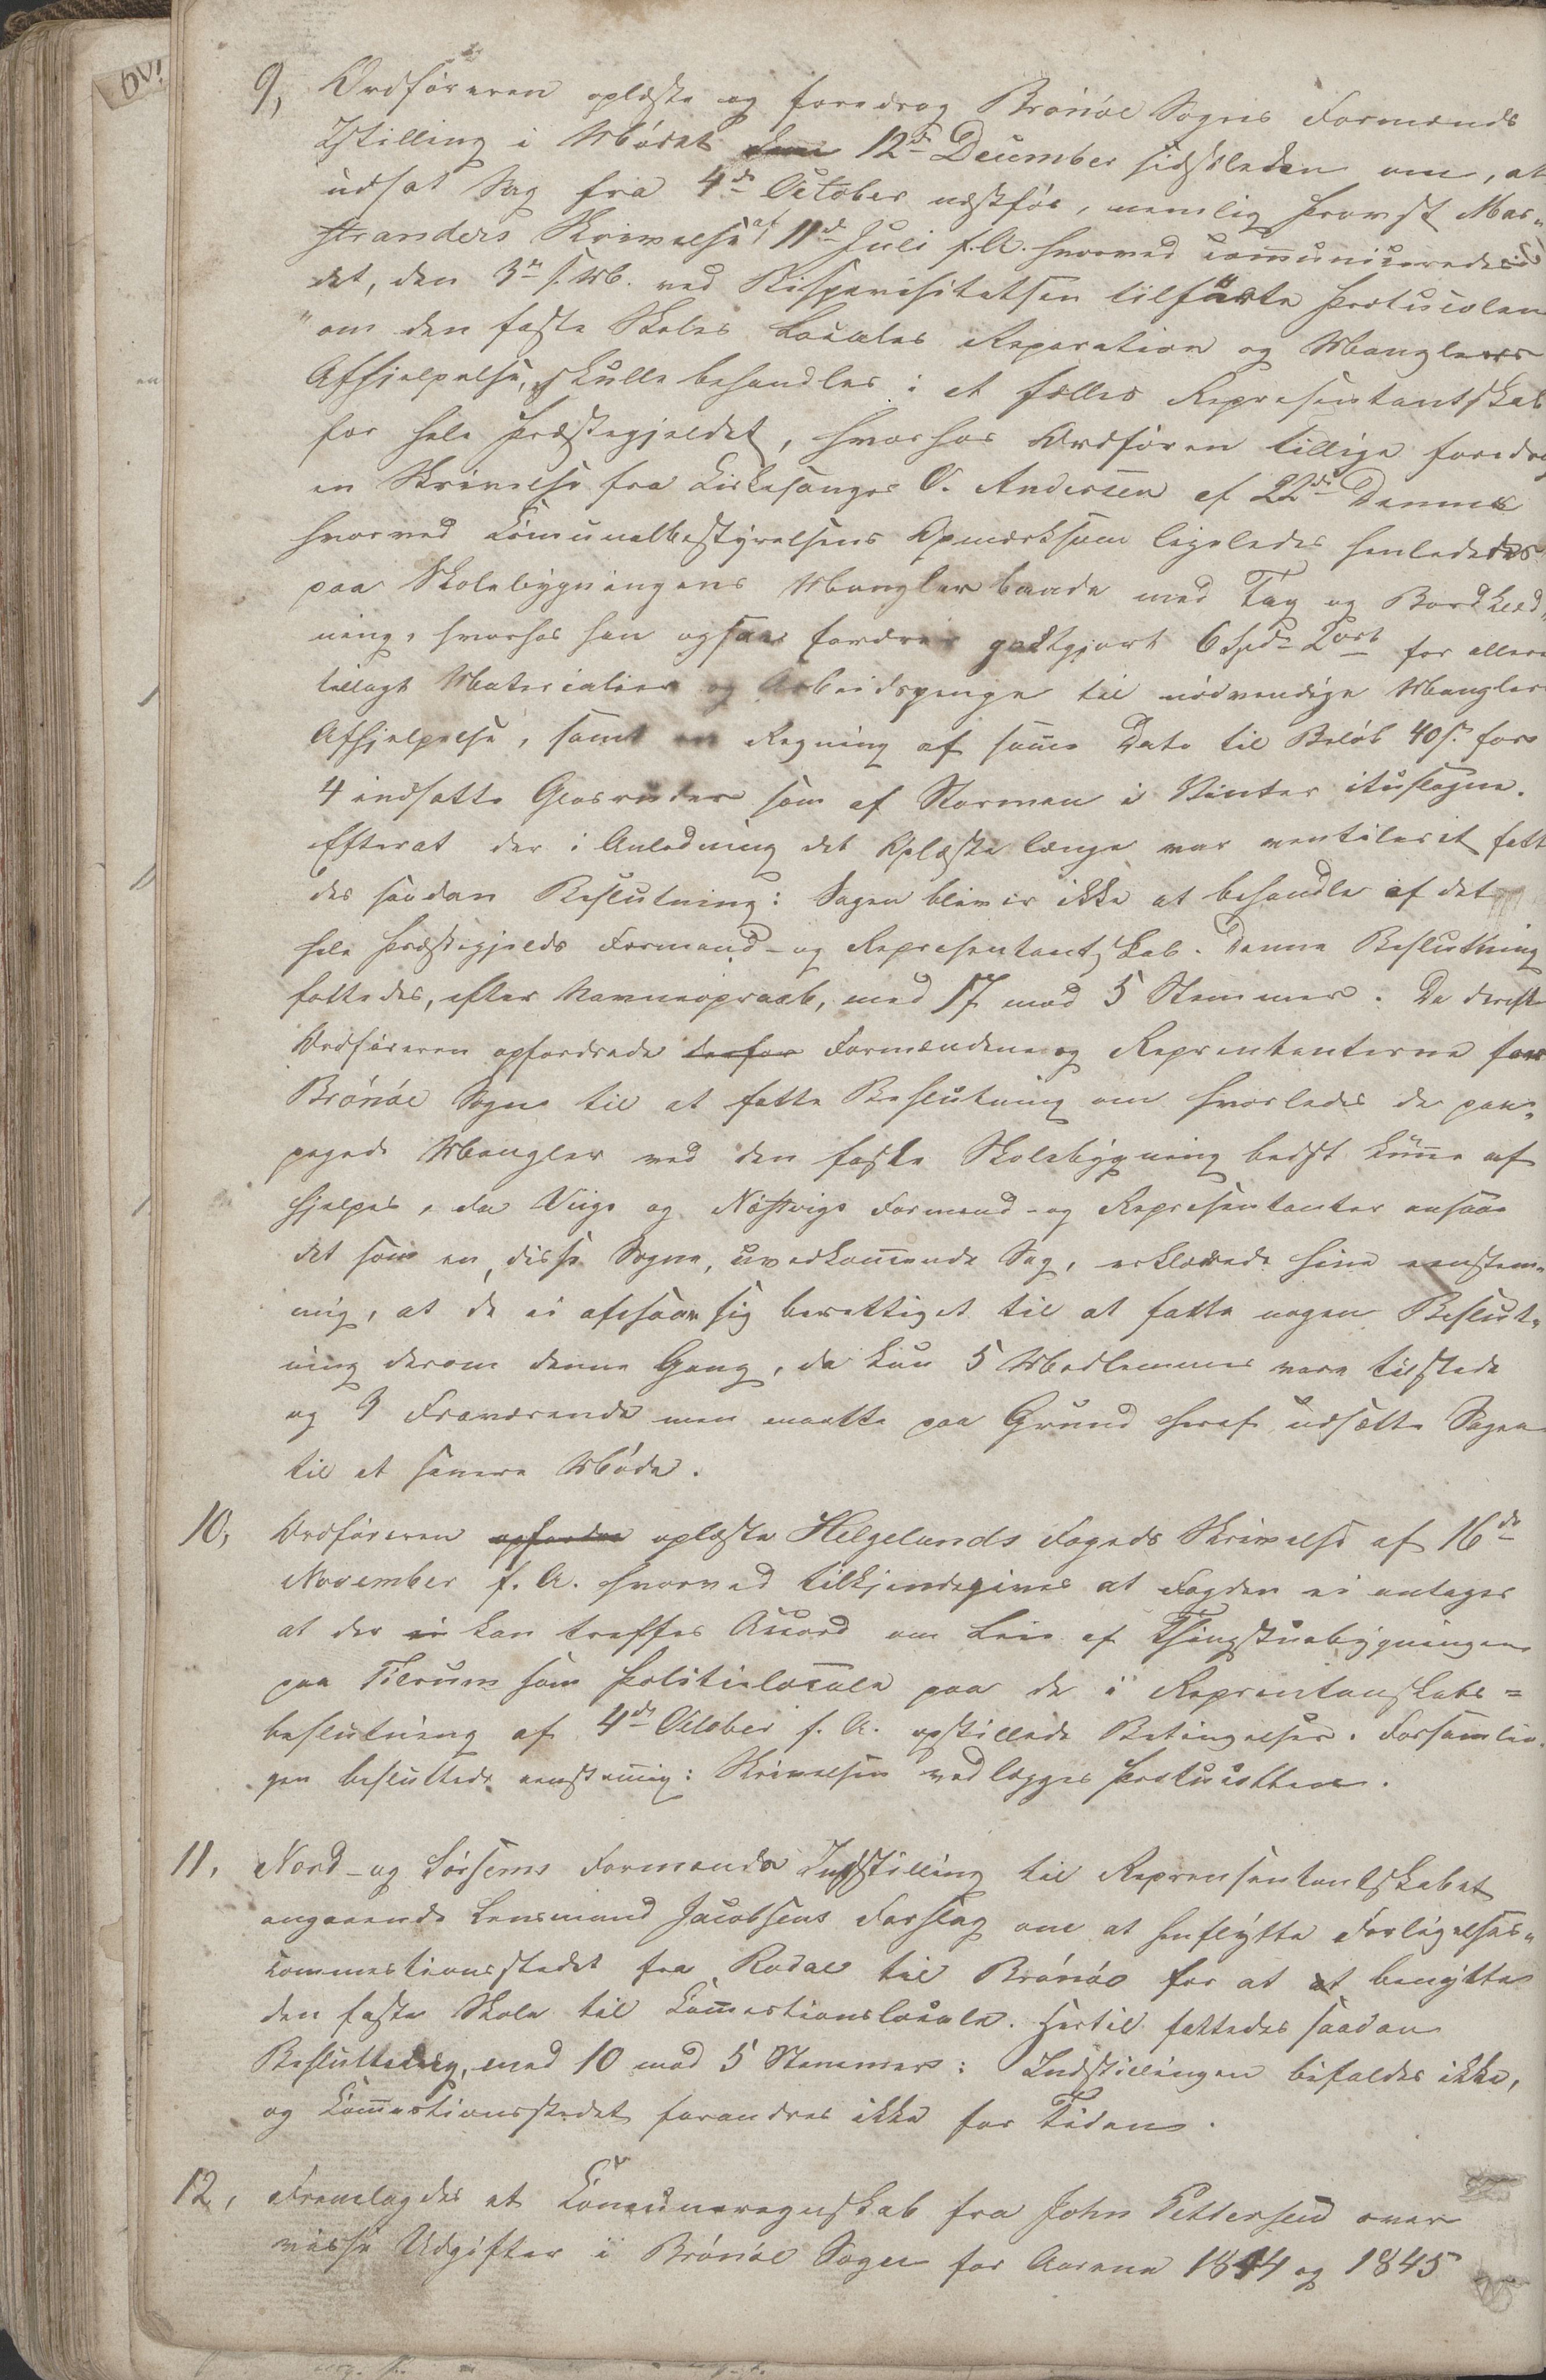 9, Ordføreren oplæste og foredrog Brönöe Sogns Formænds
Istilling i Mödet den 12te December sidstleden om, at
udsat Sag fra 4de October næstfør, nemlig Provst Mar-
stranders Skrivelse af 11te Juli f. A. hvorved communiceredes
det, den 3die s. M. ved Bispevisitatsen tilførte Protucolen
om den faste Skoles Locales Reparation og Manglers
Afhjelpelse, skulle behandles i et fælles Representantskab
for hele Præstegjeldet, hvorhos Ordføren tillige foredrog
en Skrivelse fra Kirkesanger O. Andersen af 22de Dennes
hvorved Comunalbestyrelsens Opmerksom ligeledes henledes
paa Skolebygningens Mangler baade med Tag og Bordklæd-
ning, hvorhos han ogsaa fordrer godtgjort 6 Spd 2 ort for allere
tillagt Materialier og Arbeidspenge til nödvendige Manglers
Afhjelpelse, samt en Regning af same Dato til Belöb 40 s. for
4 indsatte Glasruder som af Stormen i Vinter ituslagne.
Efterat der i Anledning det Oplæste længe var ventileret fatt
des saadan Beslutning: Sagen bliver ikke at behandle af det
hele Præstegjelds Formand- og Representantskab. Denne Beslutning
fattedes, efter Navneopraab, med 17 mod 5 Stemmer. Da derefter
Ordføreren opfordrede derfor Formændene og Reprentanterne for
Brönöe Sogn til at fatte Beslutning om hvorledes de paa-
pegede Mangler ved den faste Skolebygning bedst kunne af
hjelpes, da Viigs og Nöstvigs Formænd- og Representanter ansaae
det som en, disse Sogne, uvedkommende Sag, erklærede hine eenstem-
mig, at de ei ansaae sig berettiget til at fatte nogen Beslut-
ning derom denne Gang, da kun 5 Medlemmer vare tilstede
og 9 Fraværende men maatte paa Grund heraf udsætte Sagen
til et senere Möde.
10, Ordføreren opfordre oplæste Helgelands Fogeds Skrivelse af 16de
November f. A. hvorved tilkjendegives at Fogden ei antager
at der ei kan treffes Accord om Leie af Thingstuebygningen
paa Tilrum som Politielocale paa de i Reprentanskabs=
beslutning af 4de October f. A. opstillede Betingelser. Forsamlin-
gen besluttede eenstemig: Skrivelsen vedlægges Protucollen.
11, Nord- og Sörsems Formænds Indstilling til Reprensentantskabet
angaaende Lensmand Jacobsens Forslag om at henflytte Forligelses-
commestionsstedet fra Rodal til Brönöe for at at benytte
den faste Skole til Commestionslocale. Hertil fattedes saadan
Beslutning, med 10 mod 5 Stemmer: Indstillingen bifaldes ikke,
og Commestionsstedet forandres ikke for Tiden.
12, Fremlagdes et Comuneregnskab fra John Pettersen over
visse Udgifter i Brönöe Sogn for Aarene 1844 og 1845